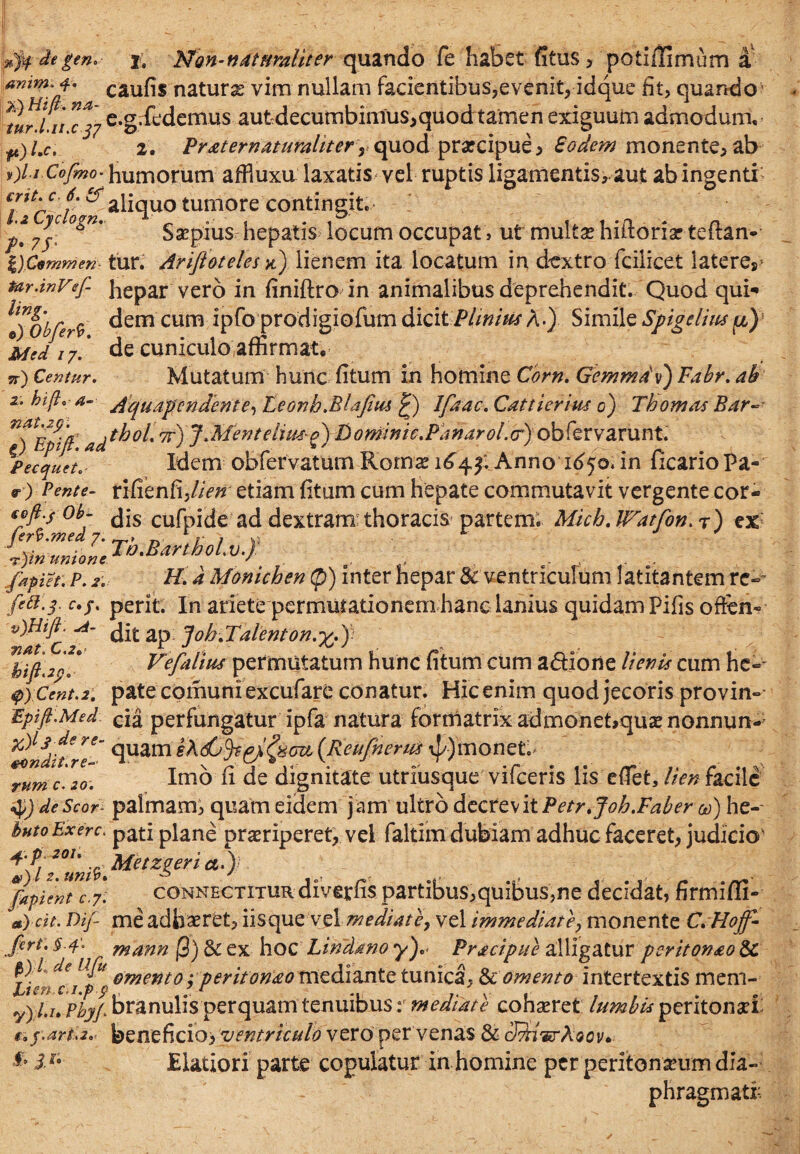 κ) 4 de gen.
anim. 4.
λ) Hist. na-
tur. l. 11. c 37
μ) l. c.
ν) l. 1 Cosmo-
crit. c. 6. &
l. 2 Cyclogn.
p. 75.
ξ) Commen-
tar. in Vesl-
ling.
ο) Observ.
Med 17.
π) Centur.
2. hist. a-
nat. 29.
ς) Epist. ad
Pecquet.
σ) Pente-
cost. 5 Ob-
serv. med 7.
τ) in unione
sapiēt. P. 2.
sect. 3. c. 5.
υ) Hist. A-
nat. C. 2.
hist. 29.
φ) Cent. 2.
Epist. Med
χ) l 3 de re-
condit. re-
rum c. 20.
ψ) de Scor-
buto Exerc.
4. p. 201.
ω) l 2. univ.
sapient c. 7.
α) cit. Dis-
sert. §. 4.
β) l. de Usu
Lien. c. 1. p 9
γ) l. 1. Phys.
c. 5. art. 2.
§. 31.
1. Non-naturaliter quando se habet situs, potissimùm à
causis naturæ vim nullam facientibus, evenit, idque fit, quando
e.g. sedemus aut decumbimus, quod tamen exiguum admodum.
2. Præternaturaliter, quod præcipuè, Eodem monente, ab
humorum affluxu laxatis vel ruptis ligamentis, aut ab ingenti
aliquo tumore contingit.
Sæpius hepatis locum occupat, ut multæ historiæ testan-
tur. Aristoteles κ) lienem ita locatum in dextro scilicet latere,
hepar verò in sinistro in animalibus deprehendit. Quod qui-
dem cum ipso prodigiosum dicit Plinius λ.) Simile Spigelius μ)
de cuniculo affirmat.
Mutatum hunc situm in homine Corn. Gemma ν) Fabr. ab
Aquapendente, Leonh. Blasius ξ) Isaac. Cattierius ο) Thomas Bar-
thol. π) J. Mentelius ς) Dominic. Panarol. σ) observarunt.
Idem observatum Romæ 1643. Anno 1650. in sicario Pa-
risiensi, lien etiam situm cum hepate commutavit vergente cor-
dis cuspide ad dextram thoracis partem. Mich. Watson. τ) ex
Th. Barthol. υ.)
H. à Monichen φ) inter hepar & ventriculum latitantem re-
perit. In ariete permutationem hanc lanius quidam Pisis osten-
dit ap. Joh. Talenton. χ.)
Vesalius permutatum hunc situm cum actione lienis cum he-
pate com̄uni excusare conatur. Hic enim quod jecoris provin-
ciâ perfungatur ipsa natura formatrix admonet, quæ nonnun-
quam (Reusnerus ψ) monet.
Imò si de dignitate utriusque visceris lis esset, lien facilè
palmam, quam eidem jam ultrò decrevit Petr. Joh. Faber ω) he-
pati planè præriperet, vel saltim dubiam adhuc faceret, judicio
Metzgeri α.)
CONNECTITUR diversis partibus, quibus, ne decidat, firmissi-
mè adhæret, iisque vel mediatè, vel immediatè, monente C. Hoff-
mann β) & ex hoc Lindano γ). Præcipuè alligatur peritonæo &
omento; peritonæo mediante tunicâ, & omento intertextis mem-
branulis perquam tenuibus: mediatè cohæret lumbis peritonæi
beneficio, ventriculo verò per venas & ἐπίπλοον.
Elatiori parte copulatur in homine per peritonæum dia-
phragmati